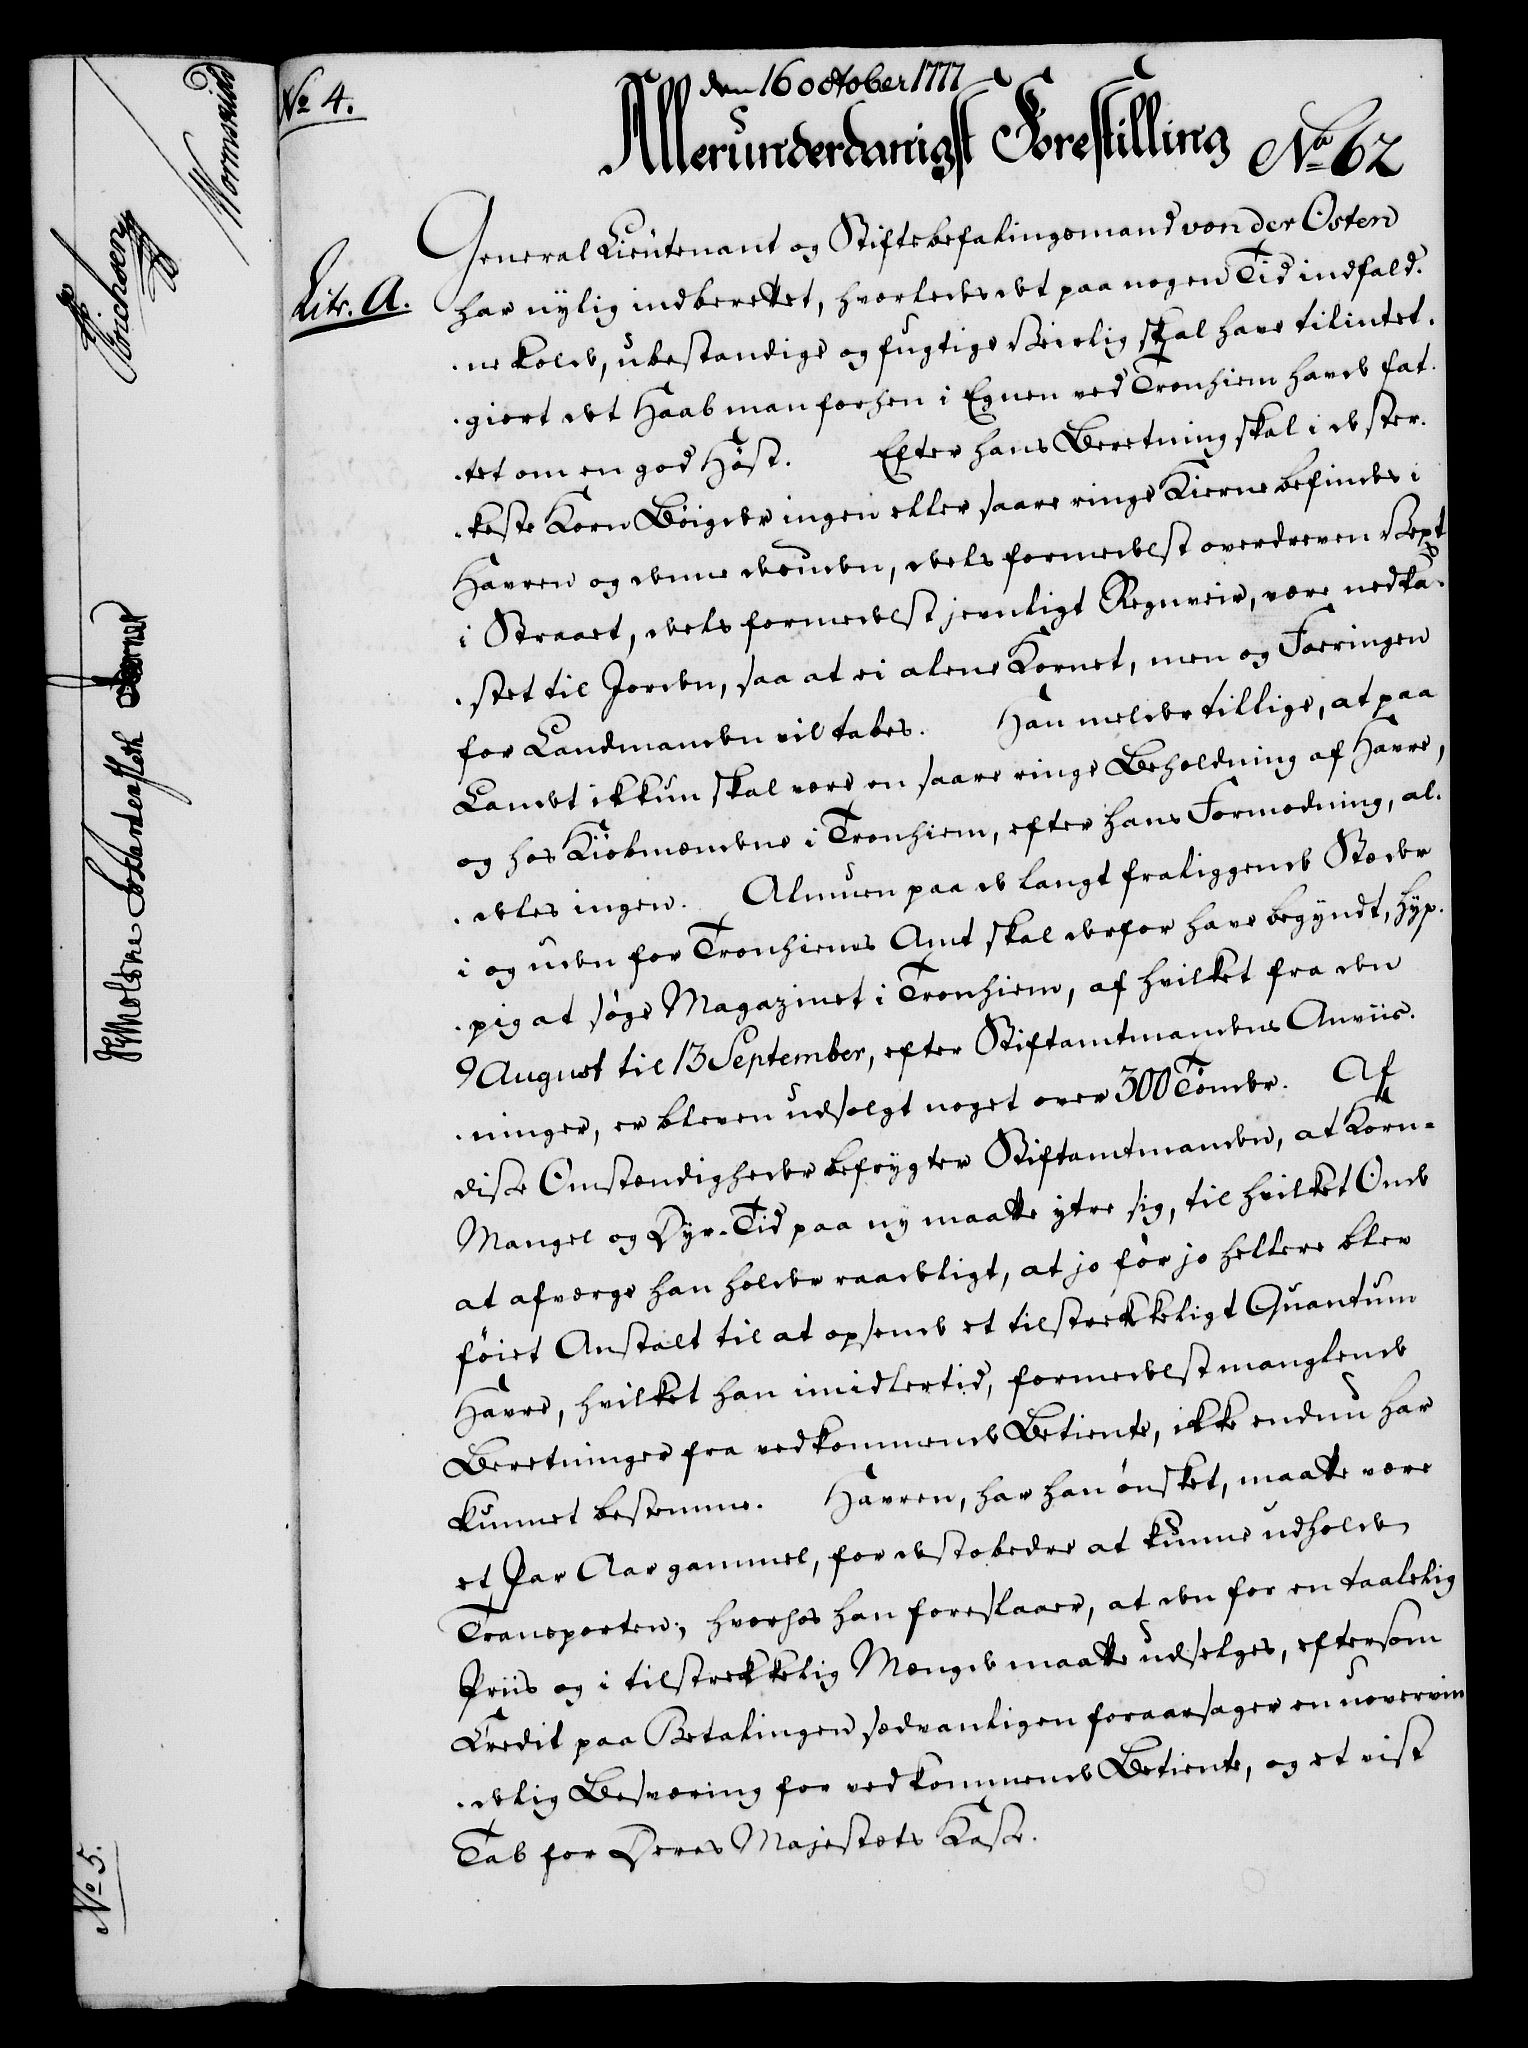 No 4.
den 16 october 1777
Allerunderdanigst Forestilling No 62
Litr. A.
General Lieutenant og Stiftsbefalingsmand von der Osten
har nylig indberettet, hvorledes det paa nogen Tid indfald-
-ne kolde, ubestandige og fugtige Veirlig skal have tilintet-
-giort det Haab man forhen i Egnen ved Tronhiem havde fat-
-tet om en god Høst. Efter hans Beretning skal i de ster-
-keste Korn Bøigder ingen eller saare ringe Kierne befindes i
Havren og denne desuden, deels formedelst overdreven Vext
i Straaet, deels formedelst jevnligt Regnveir, være nedka-
-stet til Jorden, saa at ei alene Kornet, men og Foeringen
for Landmanden vil tabes. Han melder tillige, at paa
Landet ikkun skal være en saare ringe Beholdning af Havre,
og hos Kiøbmændene i Tronhiem, efter hans Formodning, al-
-deles ingen. Almuen paa de langt fraliggende Stæder
i og uden for Tronhiems Amt skal derfor have begyndt, hyp-
-pig at søge Magazinet i Tronhiem, af hvilket fra den
9 August til 13 September, efter Stiftamtmandens Anviis-
-ninger, er bleven udsolgt noget over 300 Tønder. Af
disse Omstændigheder befrygter Stiftamtmanden, at Korn-
Mangel og Dyr-Tid paa ny maatte ytre sig, til hvilket Onde
at afværge han holder raadeligt, at jo før jo hellere blev
føiet Anstalt til at opsende et tilstrekkeligt Quantum
Havre, hvilket han imidlertid, formedelst manglende
Beretninger fra vedkommende Betiente, ikke endnu har
kunnet bestemme. Havren, har han ønsket, maatte være
et Par Aar gammel, for destobedre at kunne udholde
Transporten; hvorhos han foreslaaer, at den for en taalelig
Priis og i tilstrekkelig Mængde maatte udselges, eftersom
Credit paa Betalingen sædvanligen foraarsager en uovervin
-delig Besværing for vedkommende Betiente, og et vist
Tab for Deres Majestæts Kasse.
Wormskiold
Erichsen
No 5.